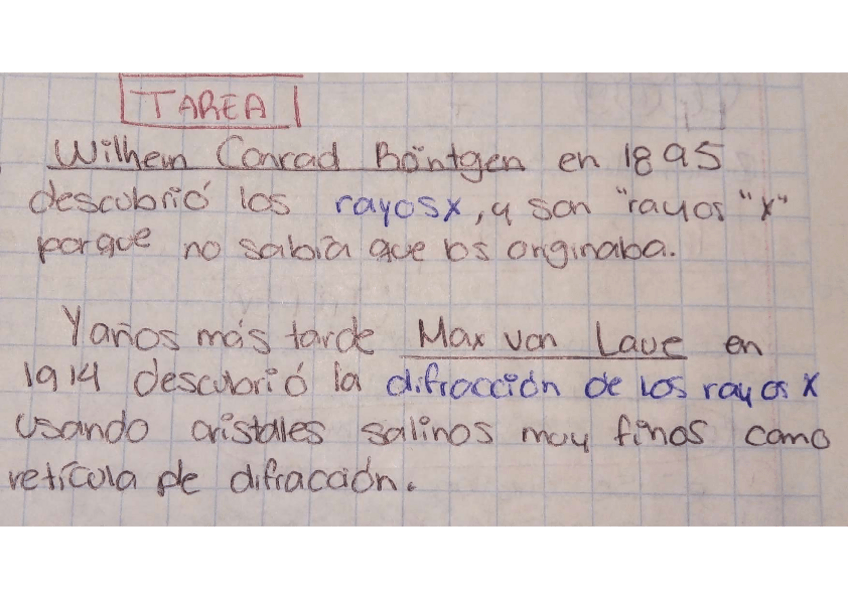 TAREA
Wilhem Conrad Röntgen en 1895
descubrió los rayosx, y son "rayos "x"
porque no sabía que los originaba.
Y años más tarde Max von Laue en
1914 descubrió la difracción de los rayos x
usando cristales salinos muy finos como
retícula de difracción.